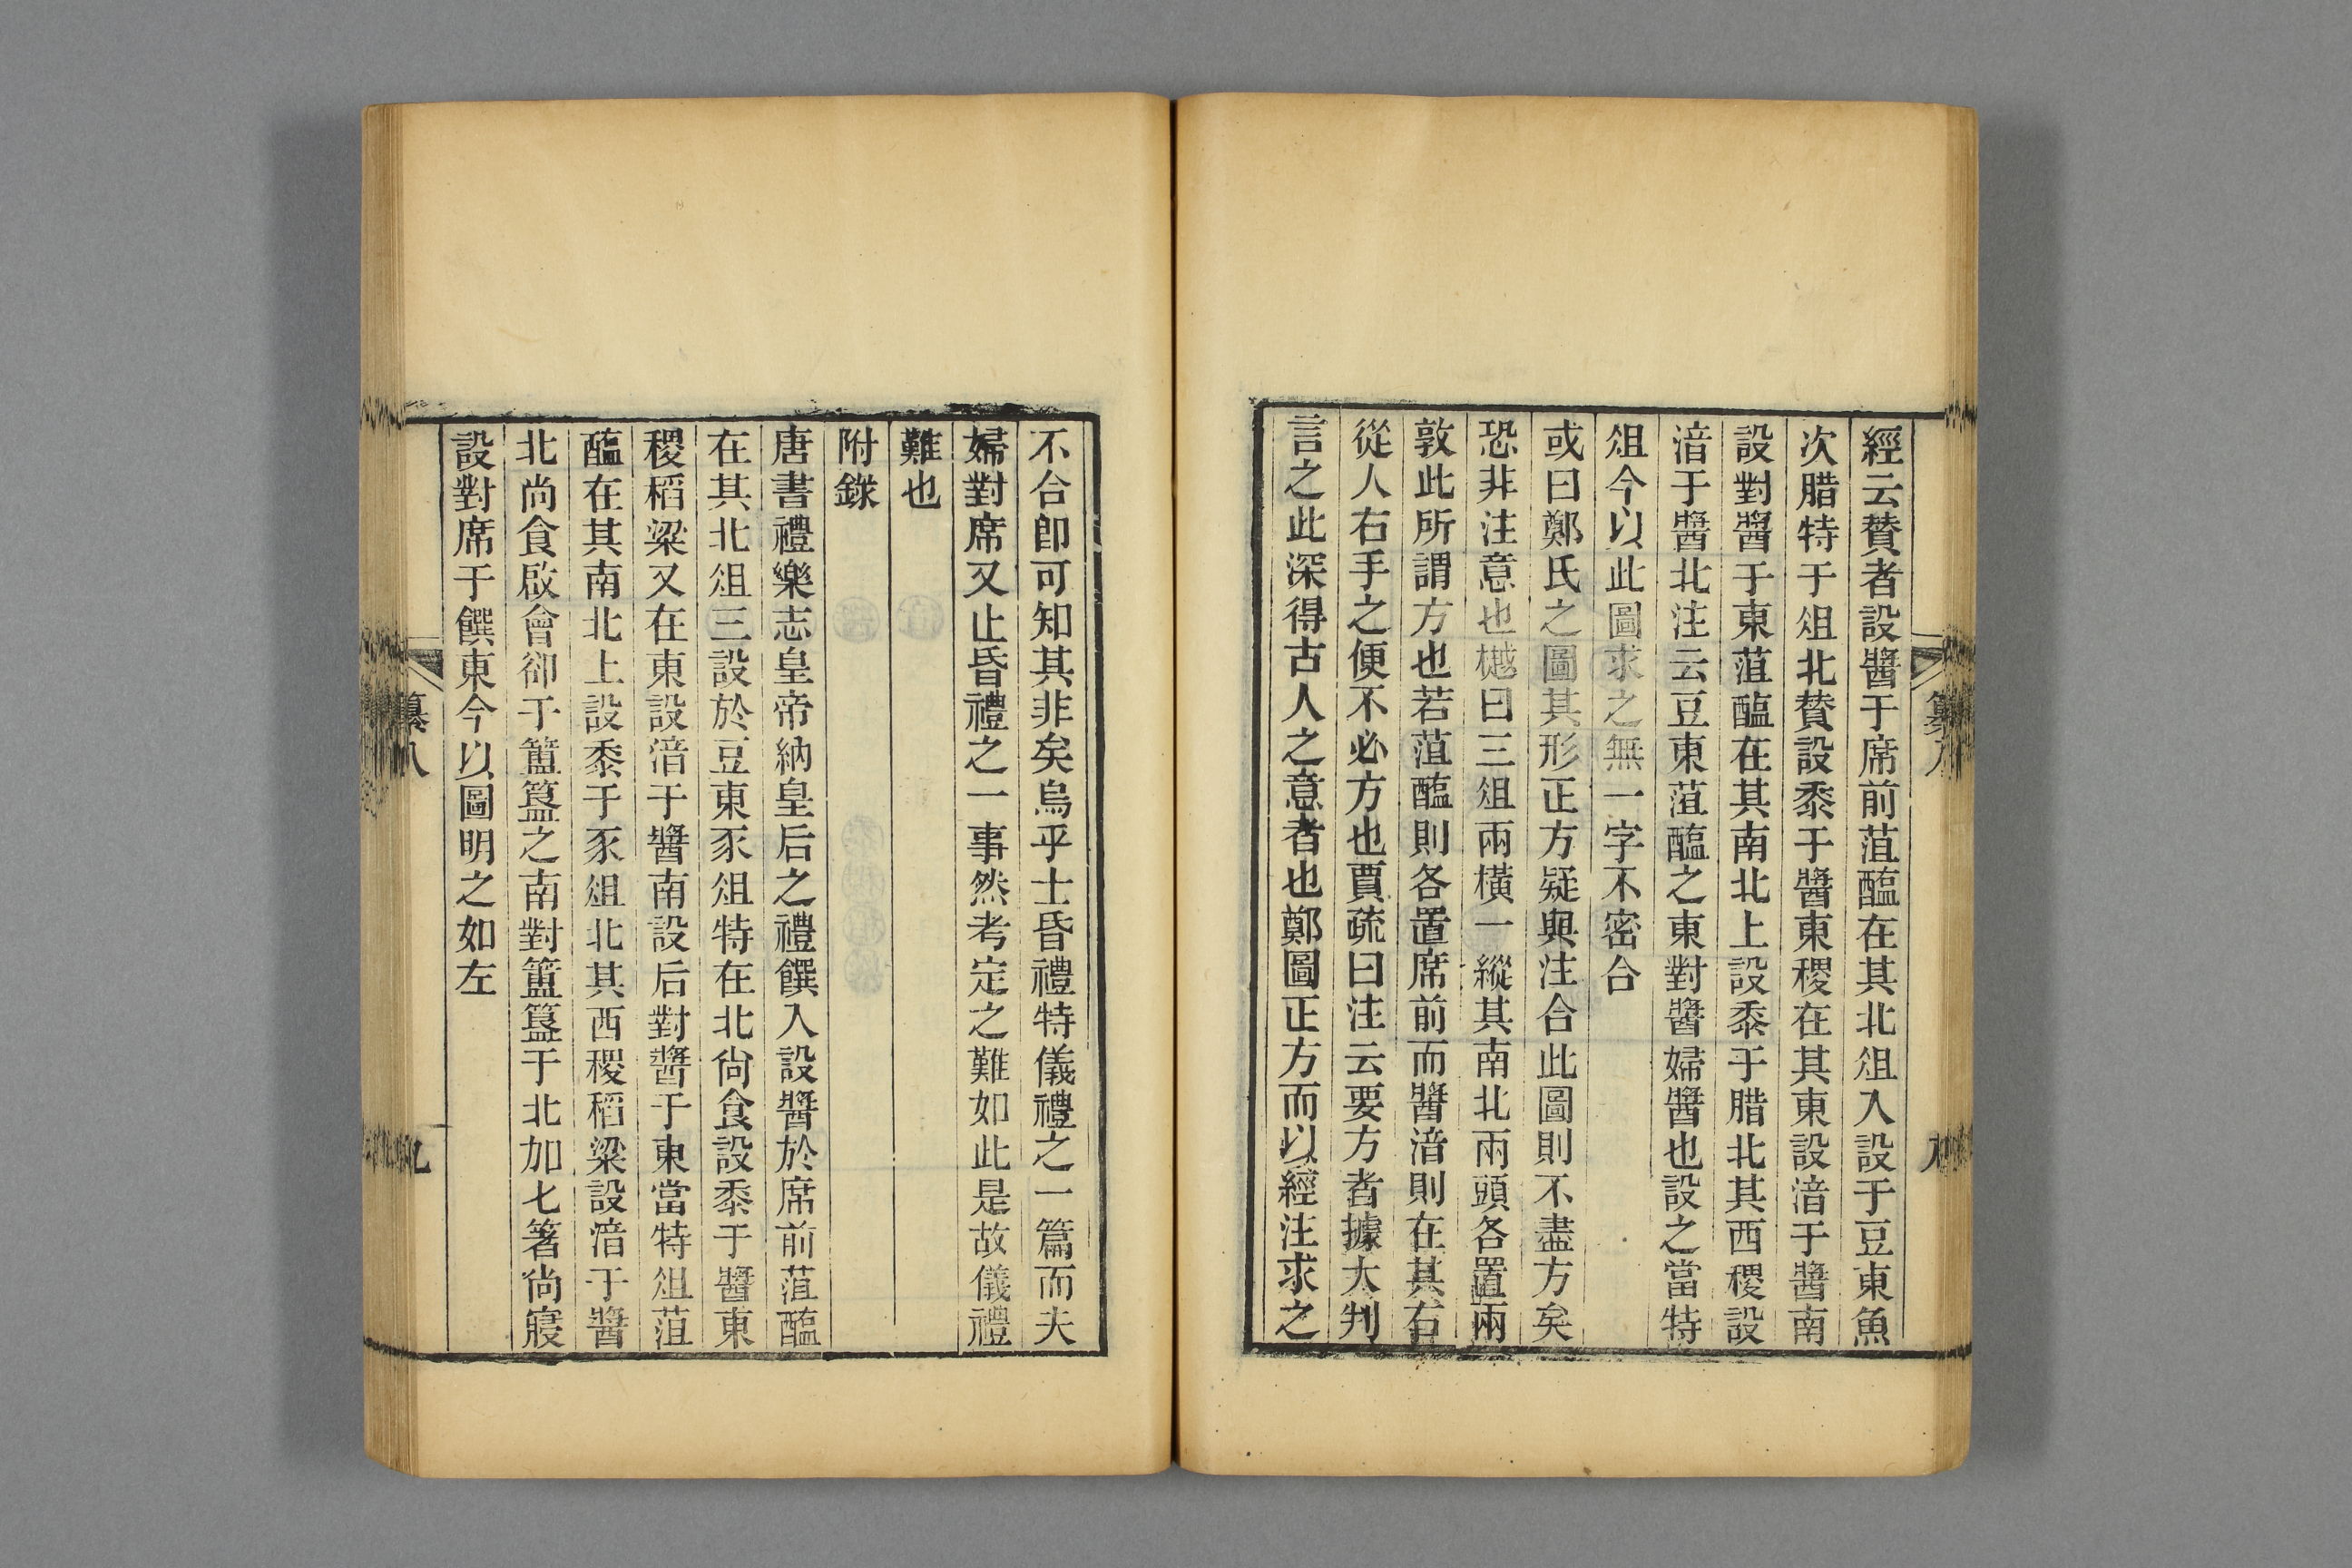 經云贊者設醬于席前菹醢在其北俎入設于豆東魚
次腊特于俎北贊設黍于醬東稷在其東設湆于醬南
設對醬于東菹醢在其南北上設黍于腊北其西稷設
湆于醬北注云豆東菹醢之東對醬婦醬也設之當特
俎今以此圖求之無一字不密合
或曰鄭氏之圖其形正方疑與注合此圖則不盡方矣
恐非注意也樾曰三俎兩橫一縱其南北兩頭各置兩
敦此所謂方也若菹醢則各置席前而醬湆則在其右
從人右手之便不必方也賈疏曰注云要方者據大判
言之此深得古人之意者也鄭圖正方而以經注求之
纂八
不合卽可知其非矣烏乎士昏禮特儀禮之一篇而夫
婦對席又止昏禮之一事然考定之難如此是故儀禮
難也
附錄
唐書禮樂志皇帝納皇后之禮饌入設醬於席前菹醢
在其北俎三設於豆東豕俎特在北尙食設黍于醬東
稷稻粱又在東設湆于醬南設后對醬于東當特俎菹
醢在其南北上設黍于豕俎北其西稷稻粱設湆于醬
北尙食啟會卻于簠簋之南對簠簋于北加匕箸尙寢
設對席于饌東今以圖明之如左
纂八
九